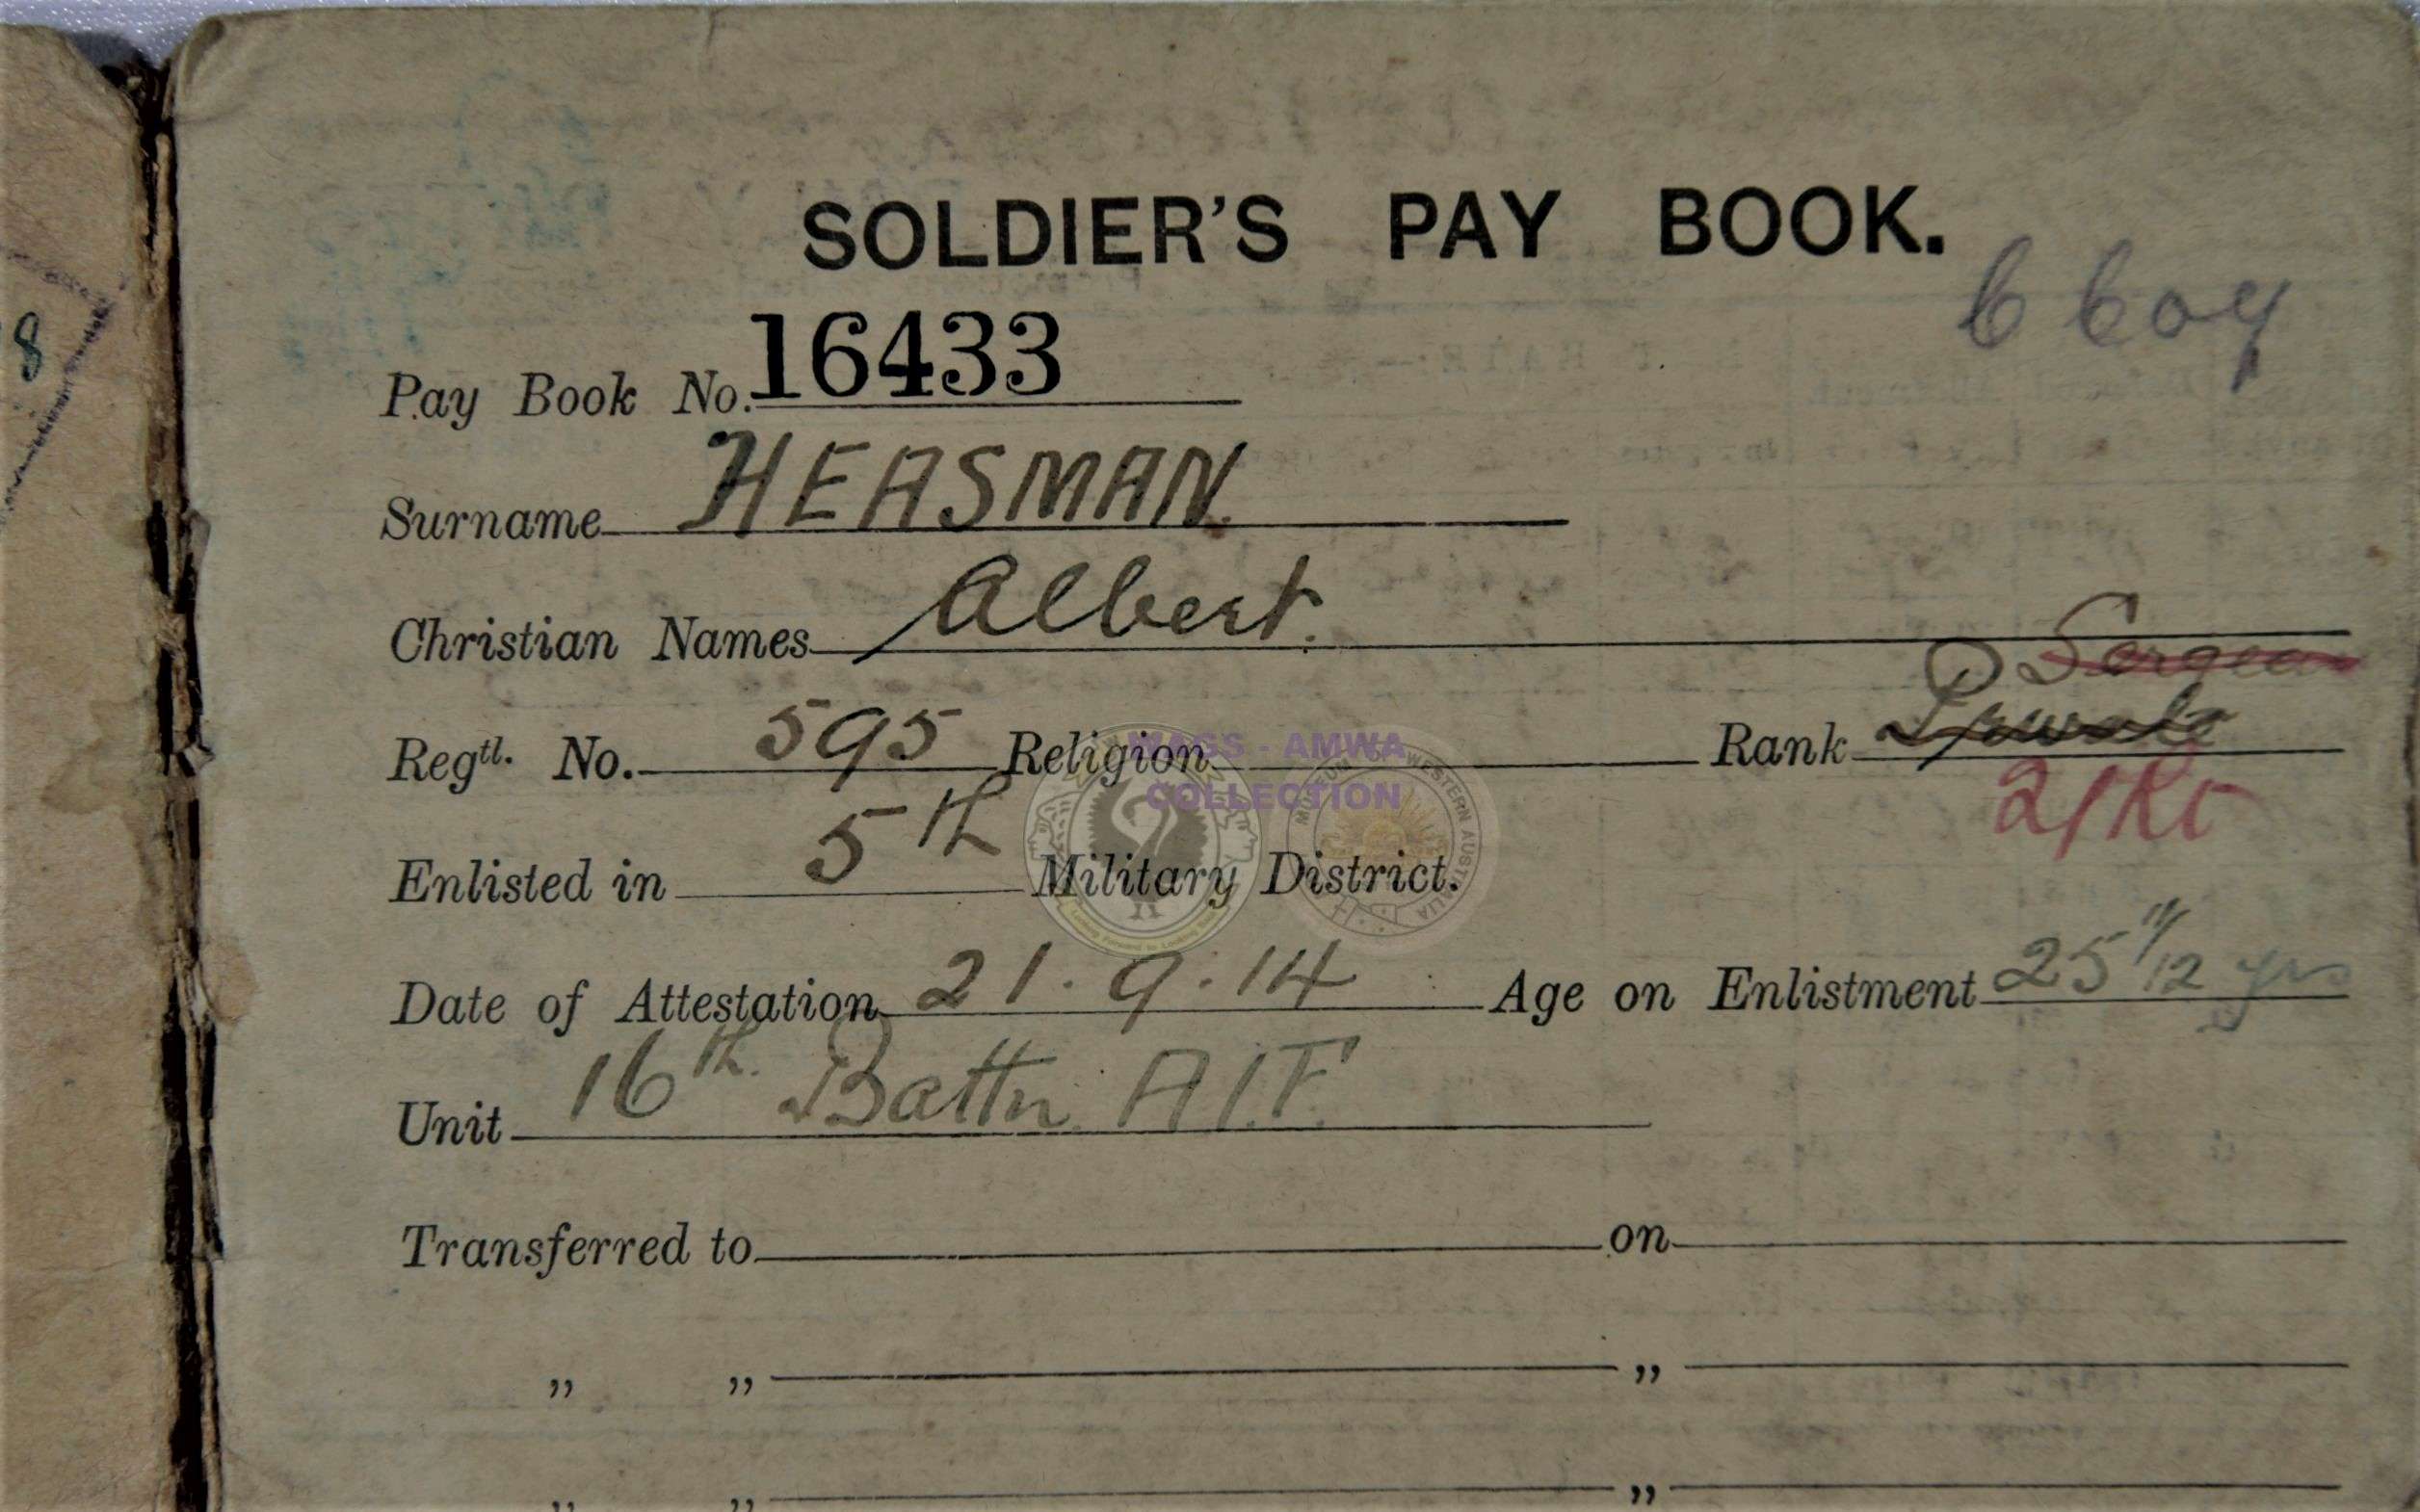 SOLDIER'S PAY BOOK.
8
Pay Book No. 16433
Surname HEASMAN.
Christian Names Albert.
Sergea
Regtl. No. 595 Religion Rank Private
MAGS - AMWA
COLLECTION
MUSEUM OF WESTERN AUSTRALIA
Enlisted in 5th Military District.
Date of Attestation 21.9.14 Age on Enlistment 25 11/12 yrs
Unit 16th. Battn. A.I.F.
Transferred to on
„ „ „
„ „ „